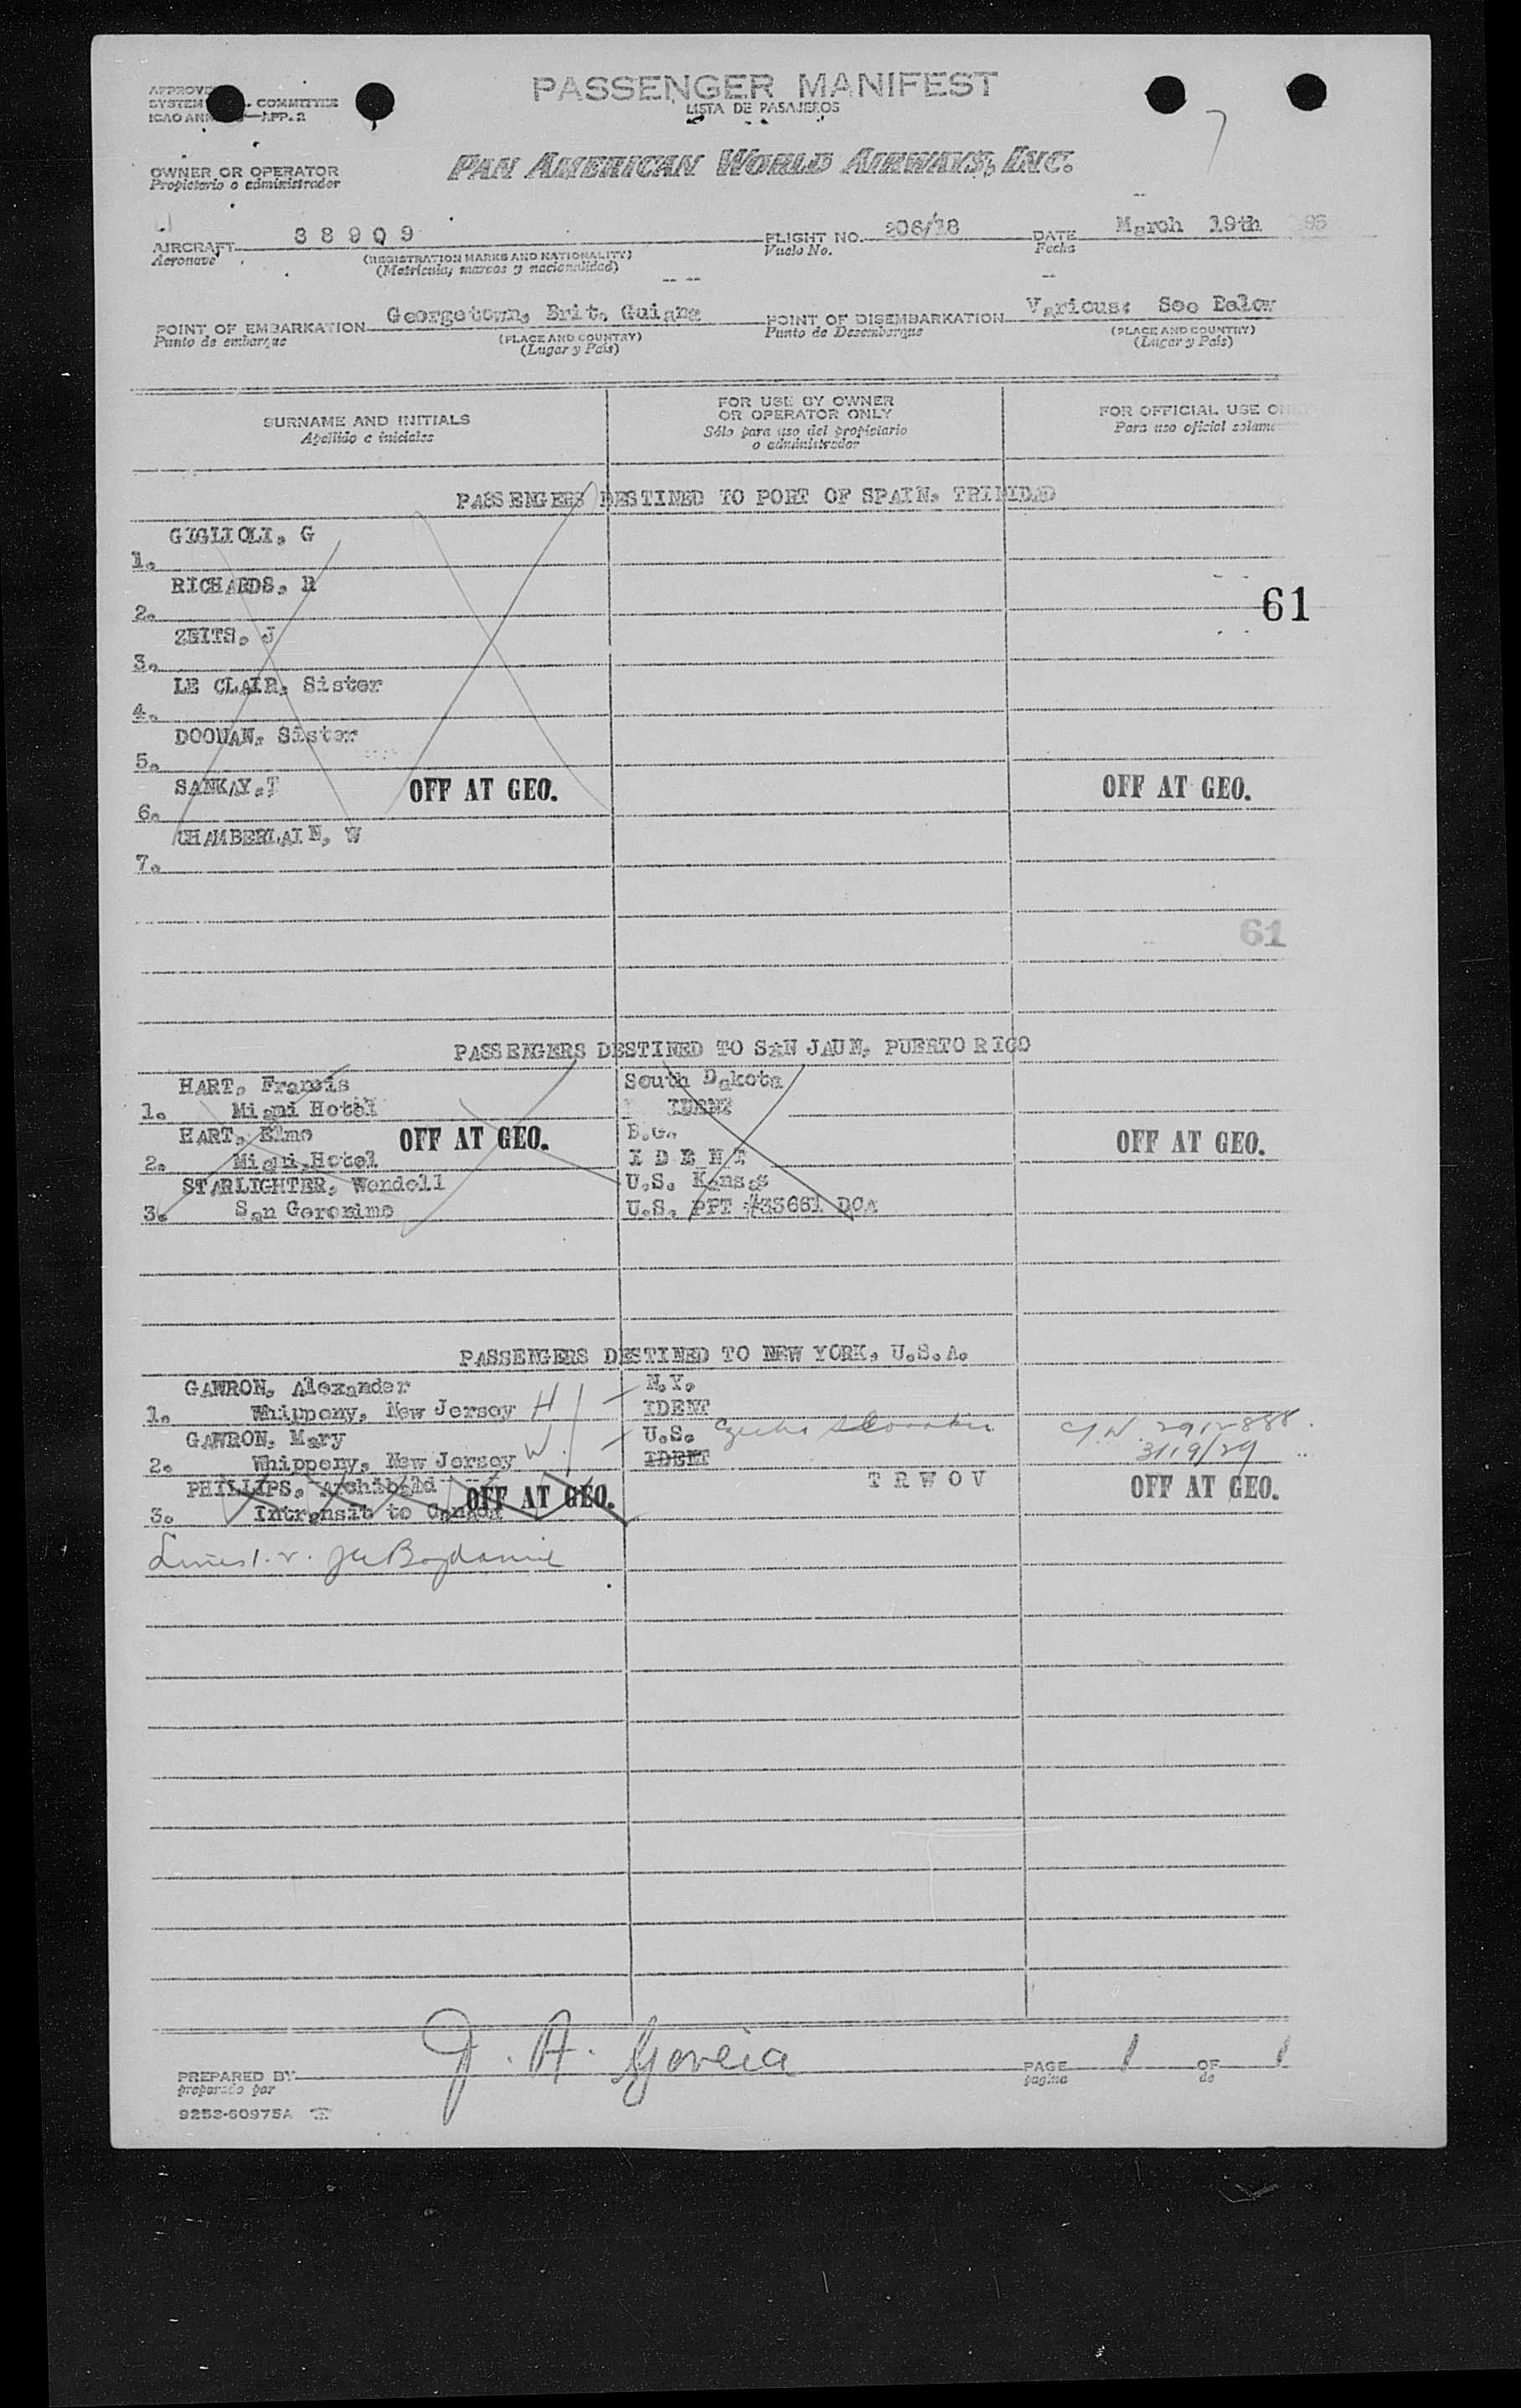 PASSENGER MANIFEST
LISTA DE PASAJEROS
SYSTEM COMMITTEE
APP. 2
OWNER OR OPERATOR
Propietario o administrador
PAN AMERICAN WORLD AIRWAYS, INC.
AIRCRAFT 88909 FLIGHT NO. 206/18 DATE March 19th 195
Aeronave (REGISTRATION MARKS AND NATIONALITY) Vuelo No. Fecha
(Matricula, marcas y nacionalidad)
POINT OF EMBARKATION Georgetown, Brit. Guiana POINT OF DISEMBARKATION Various: See Below
Punto de embarque (PLACE AND COUNTRY) Punto de Desembarque (PLACE AND COUNTRY)
(Lugar y País) (Lugar y País)
SURNAME AND INITIALS FOR USE BY OWNER OR OPERATOR ONLY FOR OFFICIAL USE
Apellido e iniciales Sólo para uso del propietario o administrador Para uso oficial
PASSENGERS DESTINED TO PORT OF SPAIN, TRINIDAD
1. GIGLIOLI, G
2. RICHARDS, R 61
3. ZEITS, J
4. LE CLAIR, Sister
5. Sister
6. SANKAY, T OFF AT GEO. OFF AT GEO.
7. CHAMBERLAIN, W
61
PASSENGERS DESTINED TO SAN JAUN, PUERTO RICO
HART, Francis South Dakota
1. Miami Hotel IDENT
HART, Elmo OFF AT GEO. B.G. OFF AT GEO.
2. Miami Hotel IDENT
STARLIGHTER, Wendell U.S. Kansas
3. San Geronimo U.S. PPT #33661 DCA
PASSENGERS DESTINED TO NEW YORK, U.S.A.
GAWRON, Alexander N.Y.
1. Whippony, New Jersey H IDENT
GAWRON, Mary U.S. Czecho Slovakia 2912888
2. Whippony, New Jersey W. IDENT 3/19/29
PHILLIPS, Archibald OFF AT GEO. TRWOV OFF AT GEO.
3. Intransit to Canada
PREPARED BY J. A. Goveia PAGE 1 OF 1
preparado por pagina de
9253-60975A